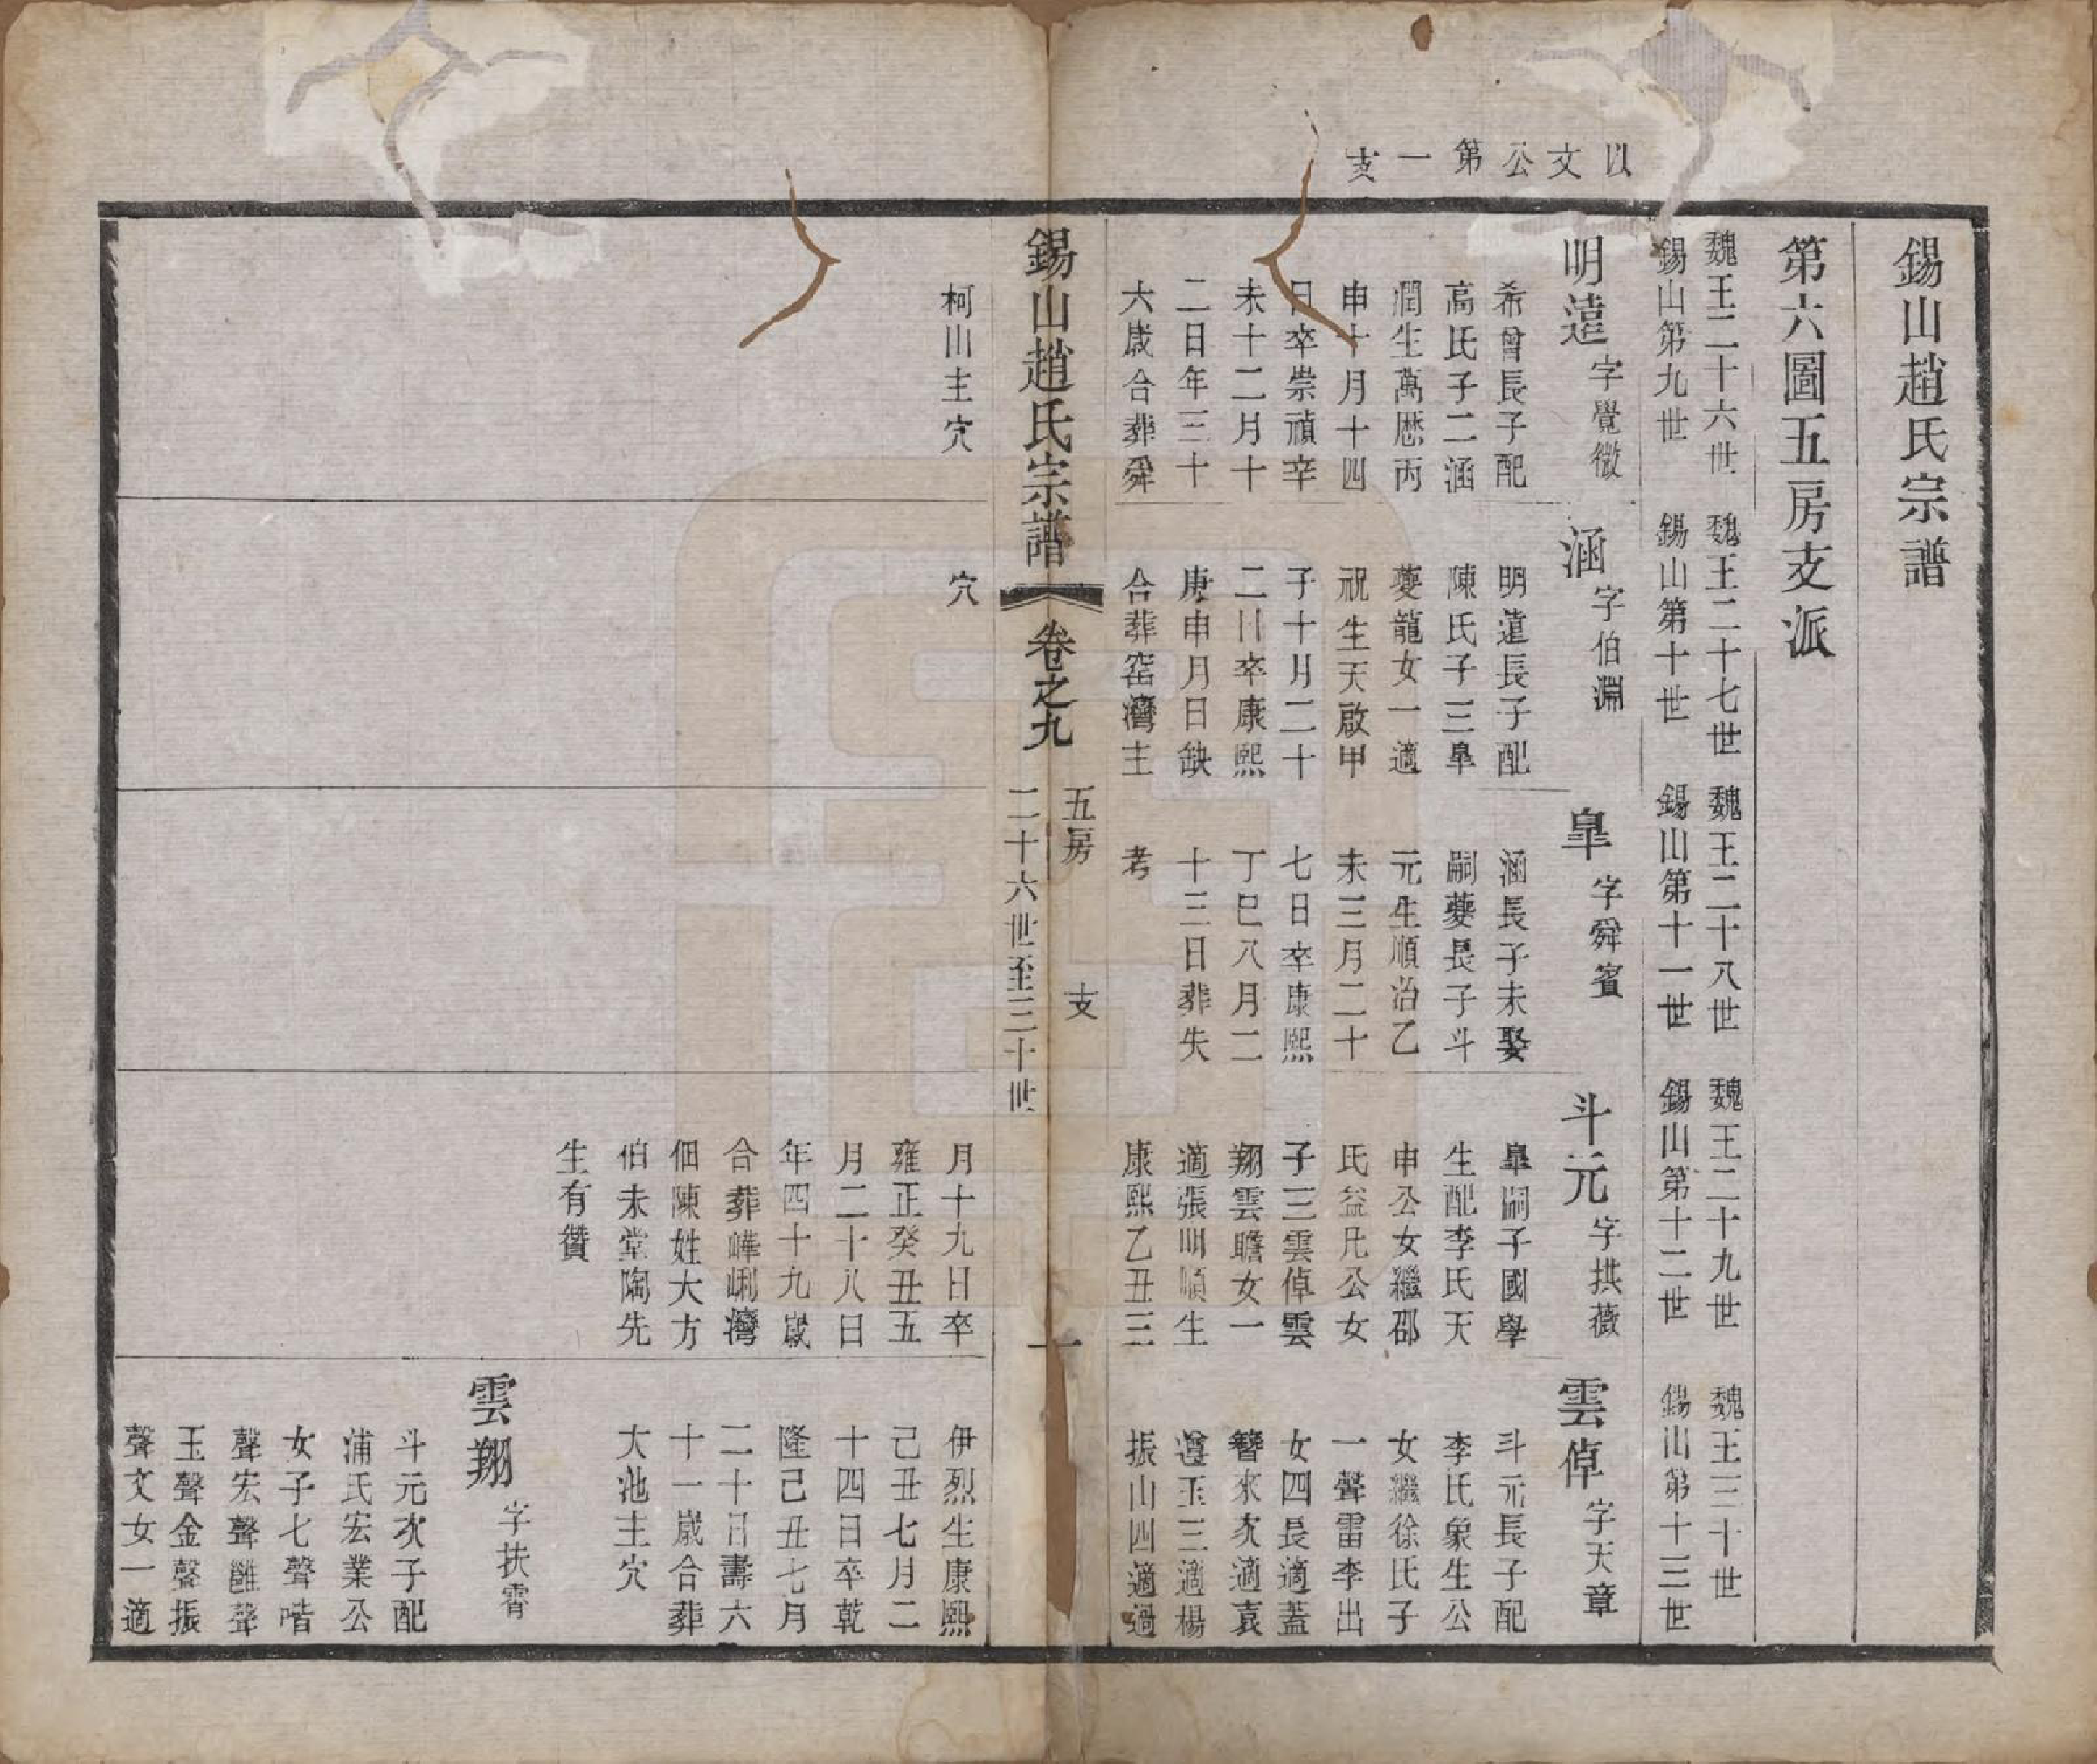 以文公第一支
錫山趙氏宗譜
第六圖五房支派
魏王二十六世
錫山第九世
魏王二十七世
錫山第十世
魏王二十八世
錫山第十一世
魏王二十九世
錫山第十二世
魏王三十世
錫山第十三世
明遠 字覺微
希曾長子配
高氏子二涵
潤生萬厯丙
申十月十四
日卒崇禎辛
未十二月十
二日年三十
六歲合葬舜
柯山主穴
涵 字伯淵
明遠長子配
陳氏子三臯
夔龍女一適
祝生天啟甲
子十月二十
二日卒康熙
庚申月日缺
合葬窑灣主
穴
臯 字舜賓
涵長子未娶
嗣夔長子斗
元生順治乙
未三月二十
七日卒康熙
丁巳八月二
十三日葬失
考
斗元 字拱薇
臯嗣子國學
生配李氏天
申公女繼邵
氏益凡公女
子三雲倬雲
翔雲瞻女一
適張明順生
康熙乙丑三
月十九日卒
雍正癸丑五
月二十八日
年四十九歲
合葬嶂峢灣
佃陳姓大方
伯未堂陶先
生有贊
雲倬 字天章
斗元長子配
李氏象生公
女繼徐氏子
一聲雷李出
女四長適蓋
簪來次適袁
遵玉三適楊
振山四適過
伊烈生康熙
己丑七月二
十四日卒乾
隆己丑七月
二十日壽六
十一歲合葬
大池主穴
雲翔 字扶霄
斗元次子配
浦氏宏業公
女子七聲喈
聲宏聲雝聲
玉聲金聲振
聲文女一適
錫山趙氏宗譜
卷之九
五房 支
二十六世至三十世
一